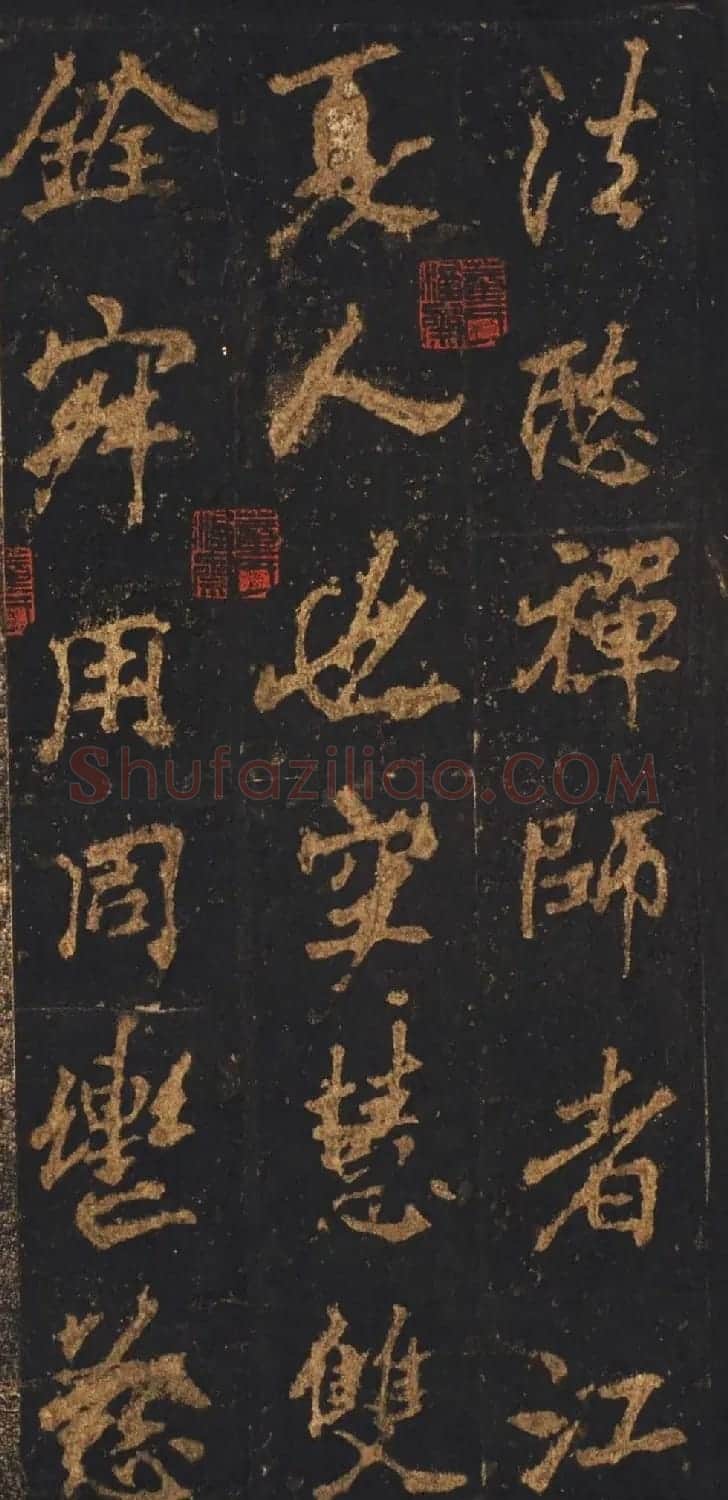 法愍禪師者江
夏人也空慧雙
銓寂用同轡慈
Shufaziliao.COM